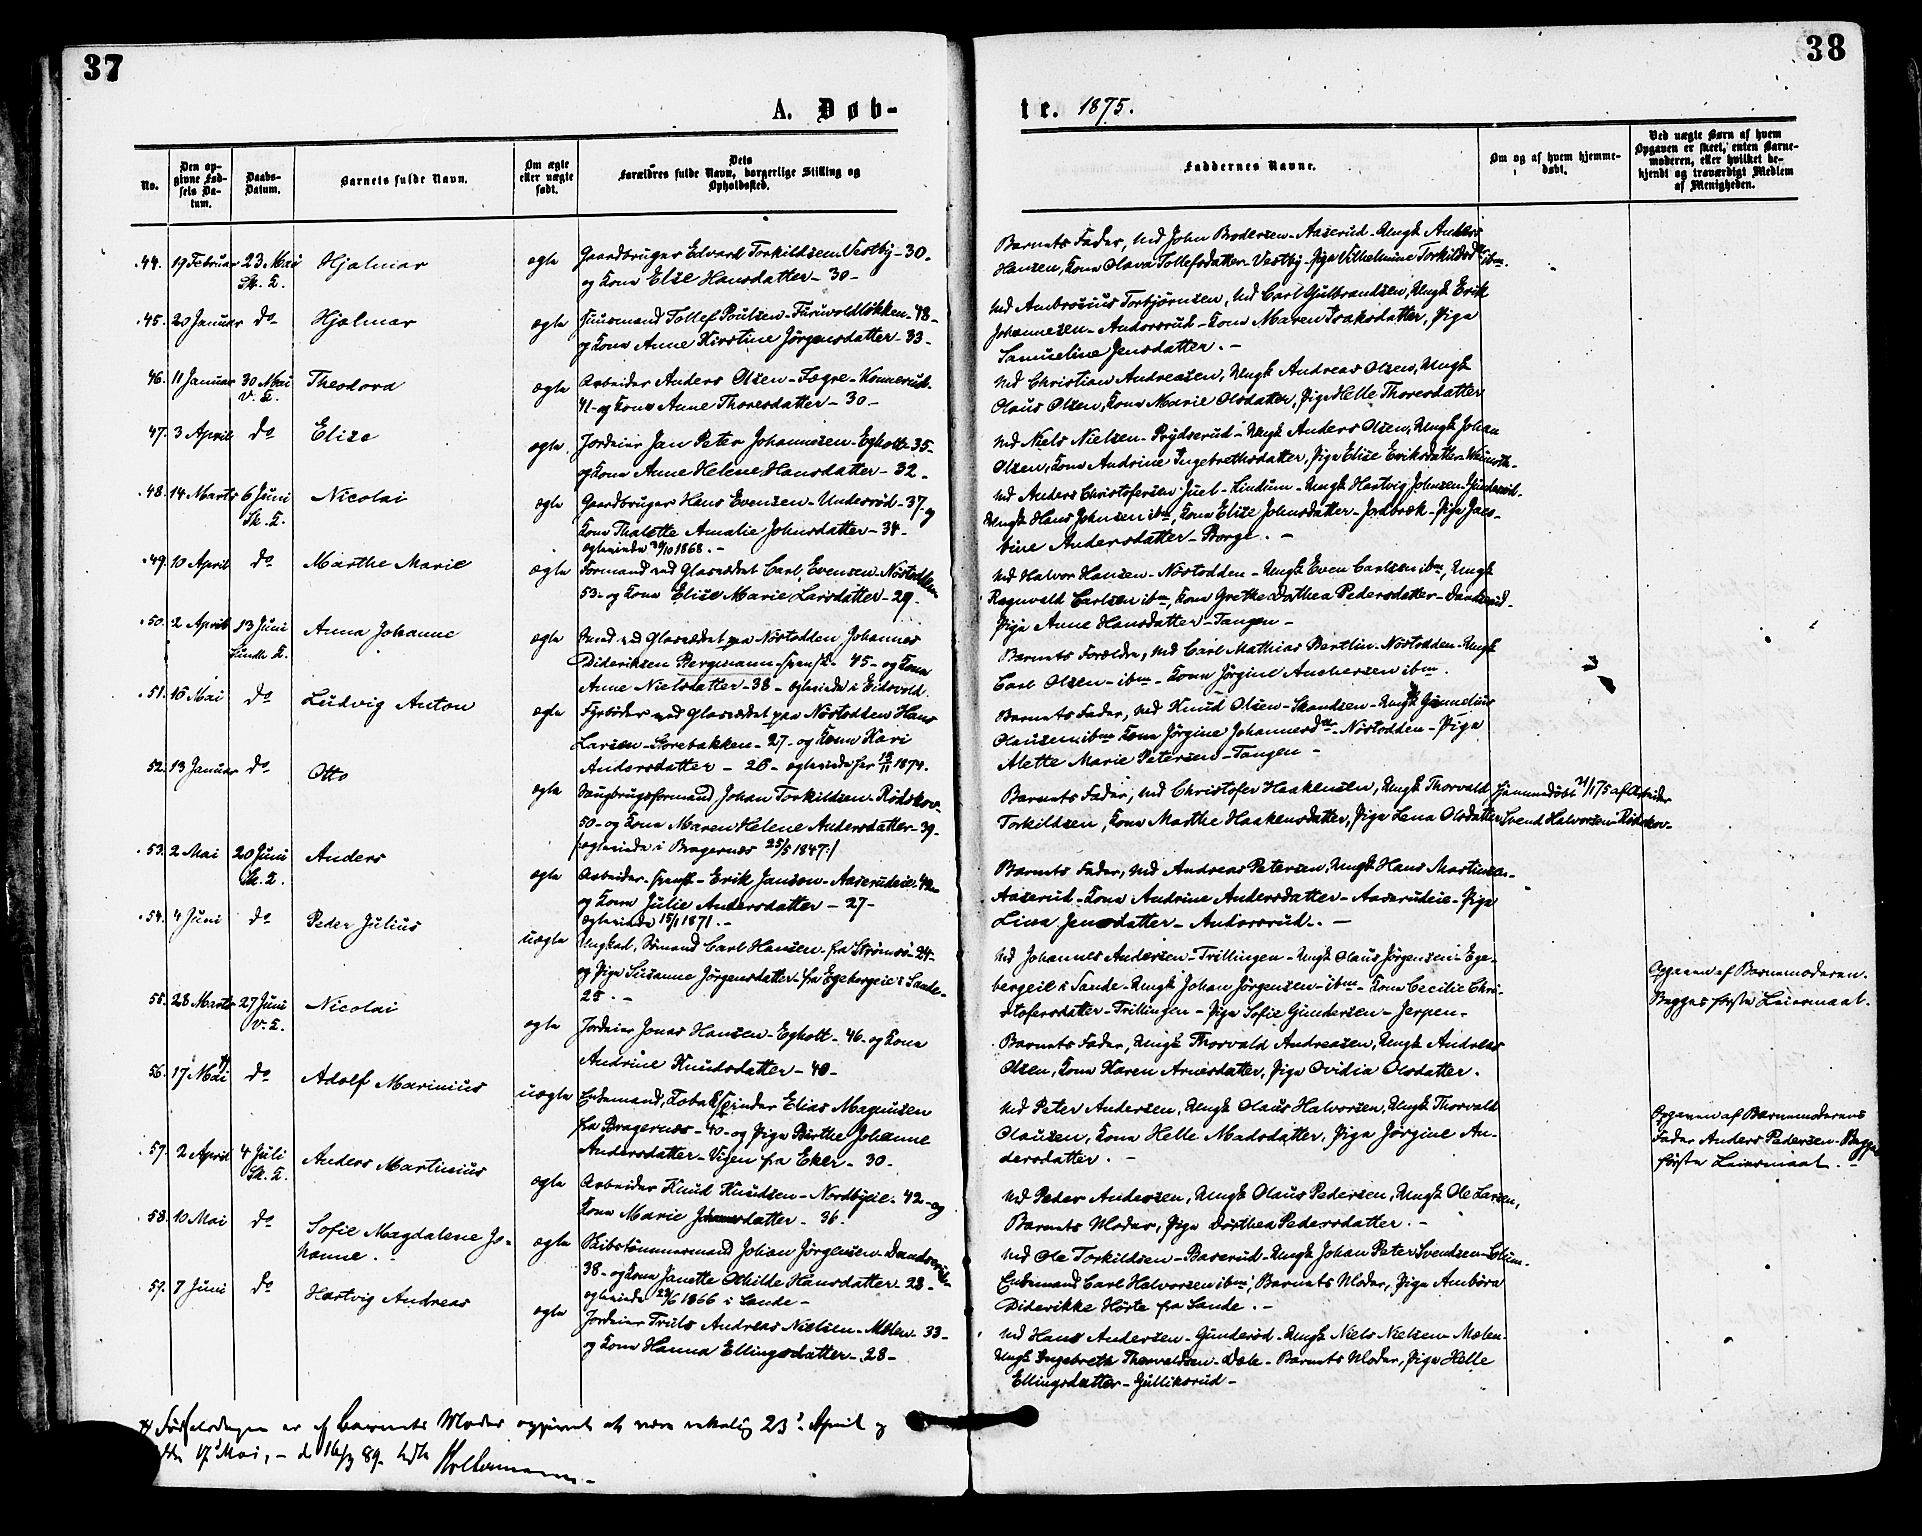 37
38
A. Døb-
te. 1875.
No.
Den op-
givne Fød-
sels Da-
tum.
Daabs-
Datum.
Barnets fulde Navn.
Om ægte
eller uægte
født.
Dets
Forældres fulde Navn, borgerlige Stilling og
Opholdssted.
Faddernes Navne.
Om og af hvem hjemme-
døbt.
Ved uægte Børn af hvem
Opgaven er skeet, enten Barne-
moderen, eller hvilket be-
kjendt og troværdigt Medlem
af Menigheden.
44. 19 Februar 23 Mai Hjalmar ægte Gaardbruger Edvard Torkildsen Vestby - 30 -
Sk. K. og Kone Else Hansdatter - 30 -
Barnets Fader, Md John Brodersen - Aaserud - Ungk Anders
Hansen, Kone Olava Tollefsdatter - Vestby - Pige Vilhelmine Torkildsdr ibm.
45. 20 Januar do Hjalmar ægte Huusmand Tollef Poulsen - Furuvoldløkken - 48 -
og Kone Anne Kirstine Jørgensdatter - 33 -
Md Ambrosius Torbjørnsen, Md Carl Gulbrandsen, Ungk Erik
Johannesen - Andorsrud - Kone Maren Isaksdatter, Pige
Samueline Jensdatter. -
46. 11 Januar 30 Mai Theodora ægte Arbeider Anders Olsen - Fægre - Konnerud.
V. K. 41 - og Kone Anne Thoresdatter - 30 -
Md Christian Andreasen, Ungk Andreas Olsen, Ungk
Olaus Olsen, Kone Marie Olsdatter, Pige Helle Thoresdatter
47. 3 April do Elise ægte Jordeier Jan Peter Johannesen - Egholt - 35 -
og Kone Anne Helene Hansdatter - 32 -
Md Niels Nielsen - Prydserud - Ungk Anders Olsen, Ungk Johan
Olsen, Kone Andrine Ingebrethsdatter, Pige Elise Eriksdatter
48. 14 Marts 6 Juni Nicolai ægte Gaardbruger Hans Evensen - Undersrød - 37 - og
Sk. K. Kone Thalette Amalie Johnsdatter - 34 -
ægteviede 30/10 1868. -
Md Anders Christofersen Juel - Lindum - Ungk Hartvig Johnsen - Gunderød -
Ungk Hans Johnsen ibm, Kone Elise Johnsdatter - Jordbræk - Pige Jaco-
bine Andersdatter - Borge. -
49. 10 April do Marthe Marie ægte Formand ved Glasværket Carl Evensen - Nøstodden
53 - og Kone Elise Marie Larsdatter - 29 -
Md Halvor Hansen - Nøstodden - Ungk Even Carlsen ibm, Ungk
Ragnvald Carlsen ibm, Kone Grethe Dorthea Pedersdatter - Dandserud -
Pige Anne Hansdatter - Tangen -
50. 2 April 13 Juni Anna Johanne ægte Smed ved Glasværket paa Nøstodden Johannes
K. Dideriksen Bergmann - svensk - 45 - og Kone
Anne Nielsdatter - 38 - ægteviede i Eidsvold.
Barnets Forældre, Md Carl Mathias Bertlin - Nøstodden - Ungk
Carl Olsen - ibm - Kone Jørgine Andersen ibm.
51. 16 Mai do Ludvig Anton ægte Fyrbøder ved Glasværket paa Nøstodden Hans
Larsen - Gorebakken - 27 - og Kone Kari
Andorsdatter - 26 - ægteviede her 12/11 1874.
Barnets Fader, Md Knud Olsen - Skandsen - Ungk Gunnelius
Olausen ibm Kone Jørgine Johannesdr - Nøstodden - Pige
Alette Marie Petersen - Tangen -
52. 13 Januar do Otto ægte Saugbrugsformand Johan Torkildsen - Rødskov.
50 - og Kone Maren Helene Andersdatter - 39 -
/: ægteviede i Bragernæs 25/5 1847 :/
Barnets Fader, Md Christofer Haakensen, Ungk Thorvald
Torkildsen, Kone Marthe Haakensdatter, Pige Lena Olsdatter
Hjemmedøbt 21/1 75 af Arbeider
Svend Halvorsen - Rødskov -
53. 2 Mai 20 Juni Anders ægte Arbeider - svensk - Erik Janson - Aaserudeie. 42 -
Sk. K. og Kone Julie Andersdatter - 27 -
ægteviede 15/1 1871. -
Barnets Fader, Md Andreas Petersen, Ungk Hans Martinsen -
Aaserud - Kone Andrine Andersdatter - Aaserudeie - Pige
Lina Jensdatter - Andorsrud. -
54. 4 Juni do Peder Julius uægte Ungkarl, Sømand Carl Hansen - fra Strømsø - 24 -
og Pige Susanne Jørgensdatter - fra Egebergeie i Sande -
25. -
Md Johannes Andersen - Trillingen - Ungk Olaus Jørgensen - Ege-
bergeie i Sande - Ungk Johan Jørgensen - ibm - Kone Cecilie Chri-
stofersdatter - Trillingen - Pige Sofie Gundersen - Jerpen -
Opgaven af Barnemoderen.
Begges første Leiermaal.
55. 28 Marts 27 Juni Nicolai ægte Jordeier Jonas Hansen - Egholt - 46 - og Kone
V. K. Andrine Knudsdatter - 40 -
Barnets Fader, Ungk Thorvald Andreasen, Ungk Andreas
Olsen, Kone Karen Arnesdatter, Pige Ovidia Olsdatter.
56. 17 Mai do Adolf Marinius uægte Enkemand, Tobaksspinder Elias Magnusen
fra Bragernæs - 40 - og Pige Birthe Johanne
Andersdatter - Vigen fra Eker - 30 -
Md Peter Andersen, Ungk Olaus Halvorsen, Ungk Thorvald
Olausen, Kone Helle Madsdatter, Pige Jørgine An-
dersdatter. -
Opgaven af Barnemoderens
Fader Anders Pedersen - Begges
første Leiermaal. -
57. 2 April 4 Juli Anders Martinius ægte Arbeider Knud Knudsen - Nordbyeie. 42 - og
Sk. K. Kone Marie datter - 36.
Md Peder Andersen, Ungk Olaus Pedersen, Ungk Ole Larsen,
Barnets Moder, Pige Dorthea Pedersdatter. -
58. 10 Mai do Sofie Magdalene Jo-
hanne. - ægte Skibstømmermand Johan Jørgensen - Dandserud
38 - og Kone Janette Othilde Hansdatter - 28 -
ægteviede 29/6 1866 i Sande -
Md Ole Torkildsen - Baserud - Ungk Johan Peter Svendsen
Enkemand Carl Halvorsen ibm, Barnets Moder, Pige Ambora
Diderikke Hörte fra Sande. -
59. 7 Juni do Hartvig Andreas ægte Jordeier Truls Andreas Nielsen - Mælen - 33 -
og Kone Hanna Ellingsdatter - 28 -
Md Hans Andersen - Gunderød - Ungk Niels Nielsen - Mælen -
Ungk Ingebreth Thorvaldsen - Dale - Barnets Moder, Pige Helle
Ellingsdatter - Gulliksrud -
Fødselsdagen er af Barnets Moder opgivet at være 23 April og
17 Mai, - d 16/7 89.